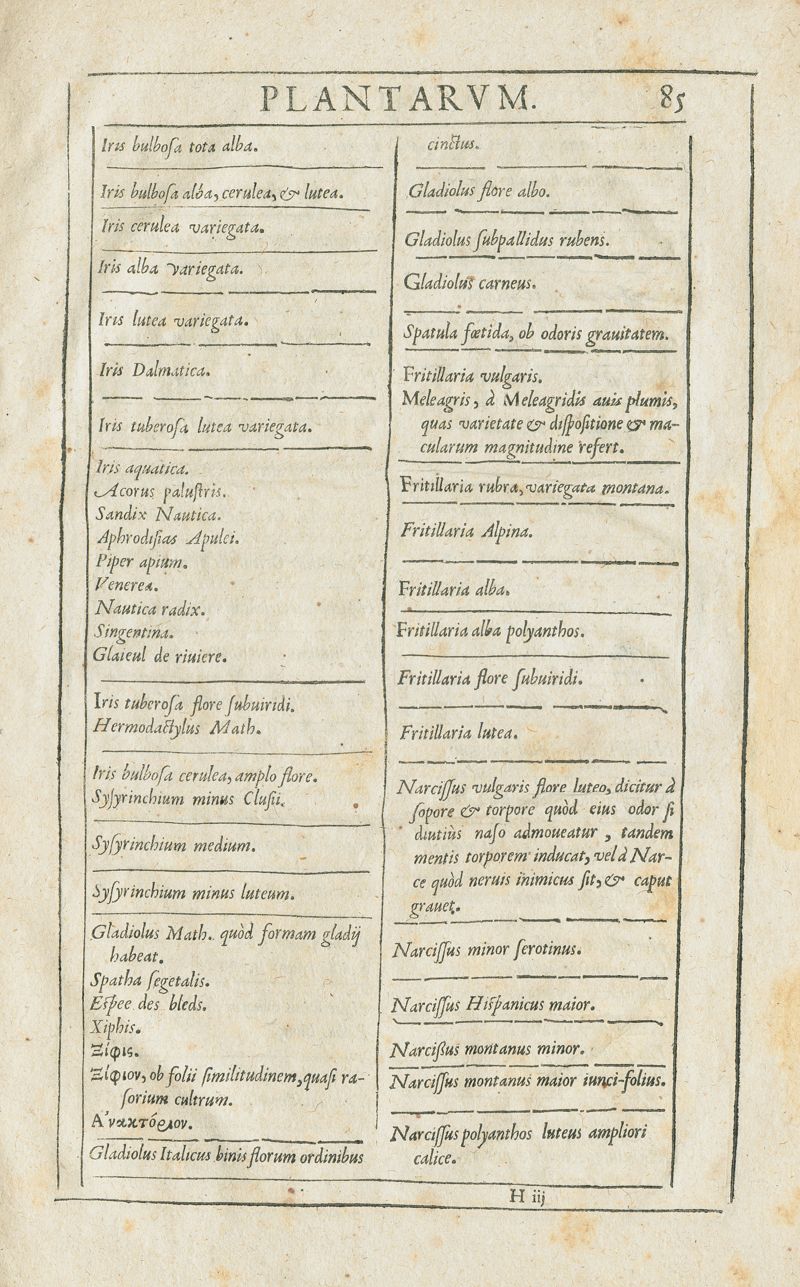 PLANTARVM. 85
Iris bulboſa tota alba.
Iris bulboſa alba, cerulea, & lutea.
Iris cerulea variegata.
Iris alba variegata.
Iris lutea variegata.
Iris Dalmatica.
Iris tuberoſa lutea variegata.
Iris aquatica.
Acorus paluſtris.
Sandix Nautica.
Aphrodiſias Apulei.
Piper apium.
Venerea.
Nautica radix.
Singentina.
Glaieul de riuiere.
Iris tuberoſa flore ſubuiridi.
Hermodactylus Math.
Iris bulboſa cerulea, amplo flore.
Syſyrinchium minus Cluſii.
Syſyrinchium medium.
Syſyrinchium minus luteum.
Gladiolus Math. quòd formam gladij
habeat.
Spatha ſegetalis.
Eſpee des bleds.
Xiphis.
Ξίφις.
Ξίφιον, ob folii ſimilitudinem, quaſi ra-
ſorium cultrum.
Α᾽νακτόριον.
Gladiolus Italicus binis florum ordinibus
cinctus.
Gladiolus flore albo.
Gladiolus ſubpallidus rubens.
Gladiolus carneus.
Spatula fœtida, ob odoris grauitatem.
Fritillaria vulgaris.
Meleagris, à Meleagridis auis plumis,
quas varietate & diſpoſitione & ma-
cularum magnitudine refert.
Fritillaria rubra, variegata montana.
Fritillaria Alpina.
Fritillaria alba.
Fritillaria alba polyanthos.
Fritillaria flore ſubuiridi.
Fritillaria lutea.
Narciſſus vulgaris flore luteo, dicitur à
ſopore & torpore quòd eius odor ſi
diutiùs naſo admoueatur, tandem
mentis torporem inducat, vel à Nar-
ce quòd neruis inimicus ſit, & caput
grauet.
Narciſſus minor ſerotinus.
Narciſſus Hiſpanicus maior.
Narciſſus montanus minor.
Narciſſus montanus maior iunci-folius.
Narciſſus polyanthos luteus ampliori
calice.
H iij